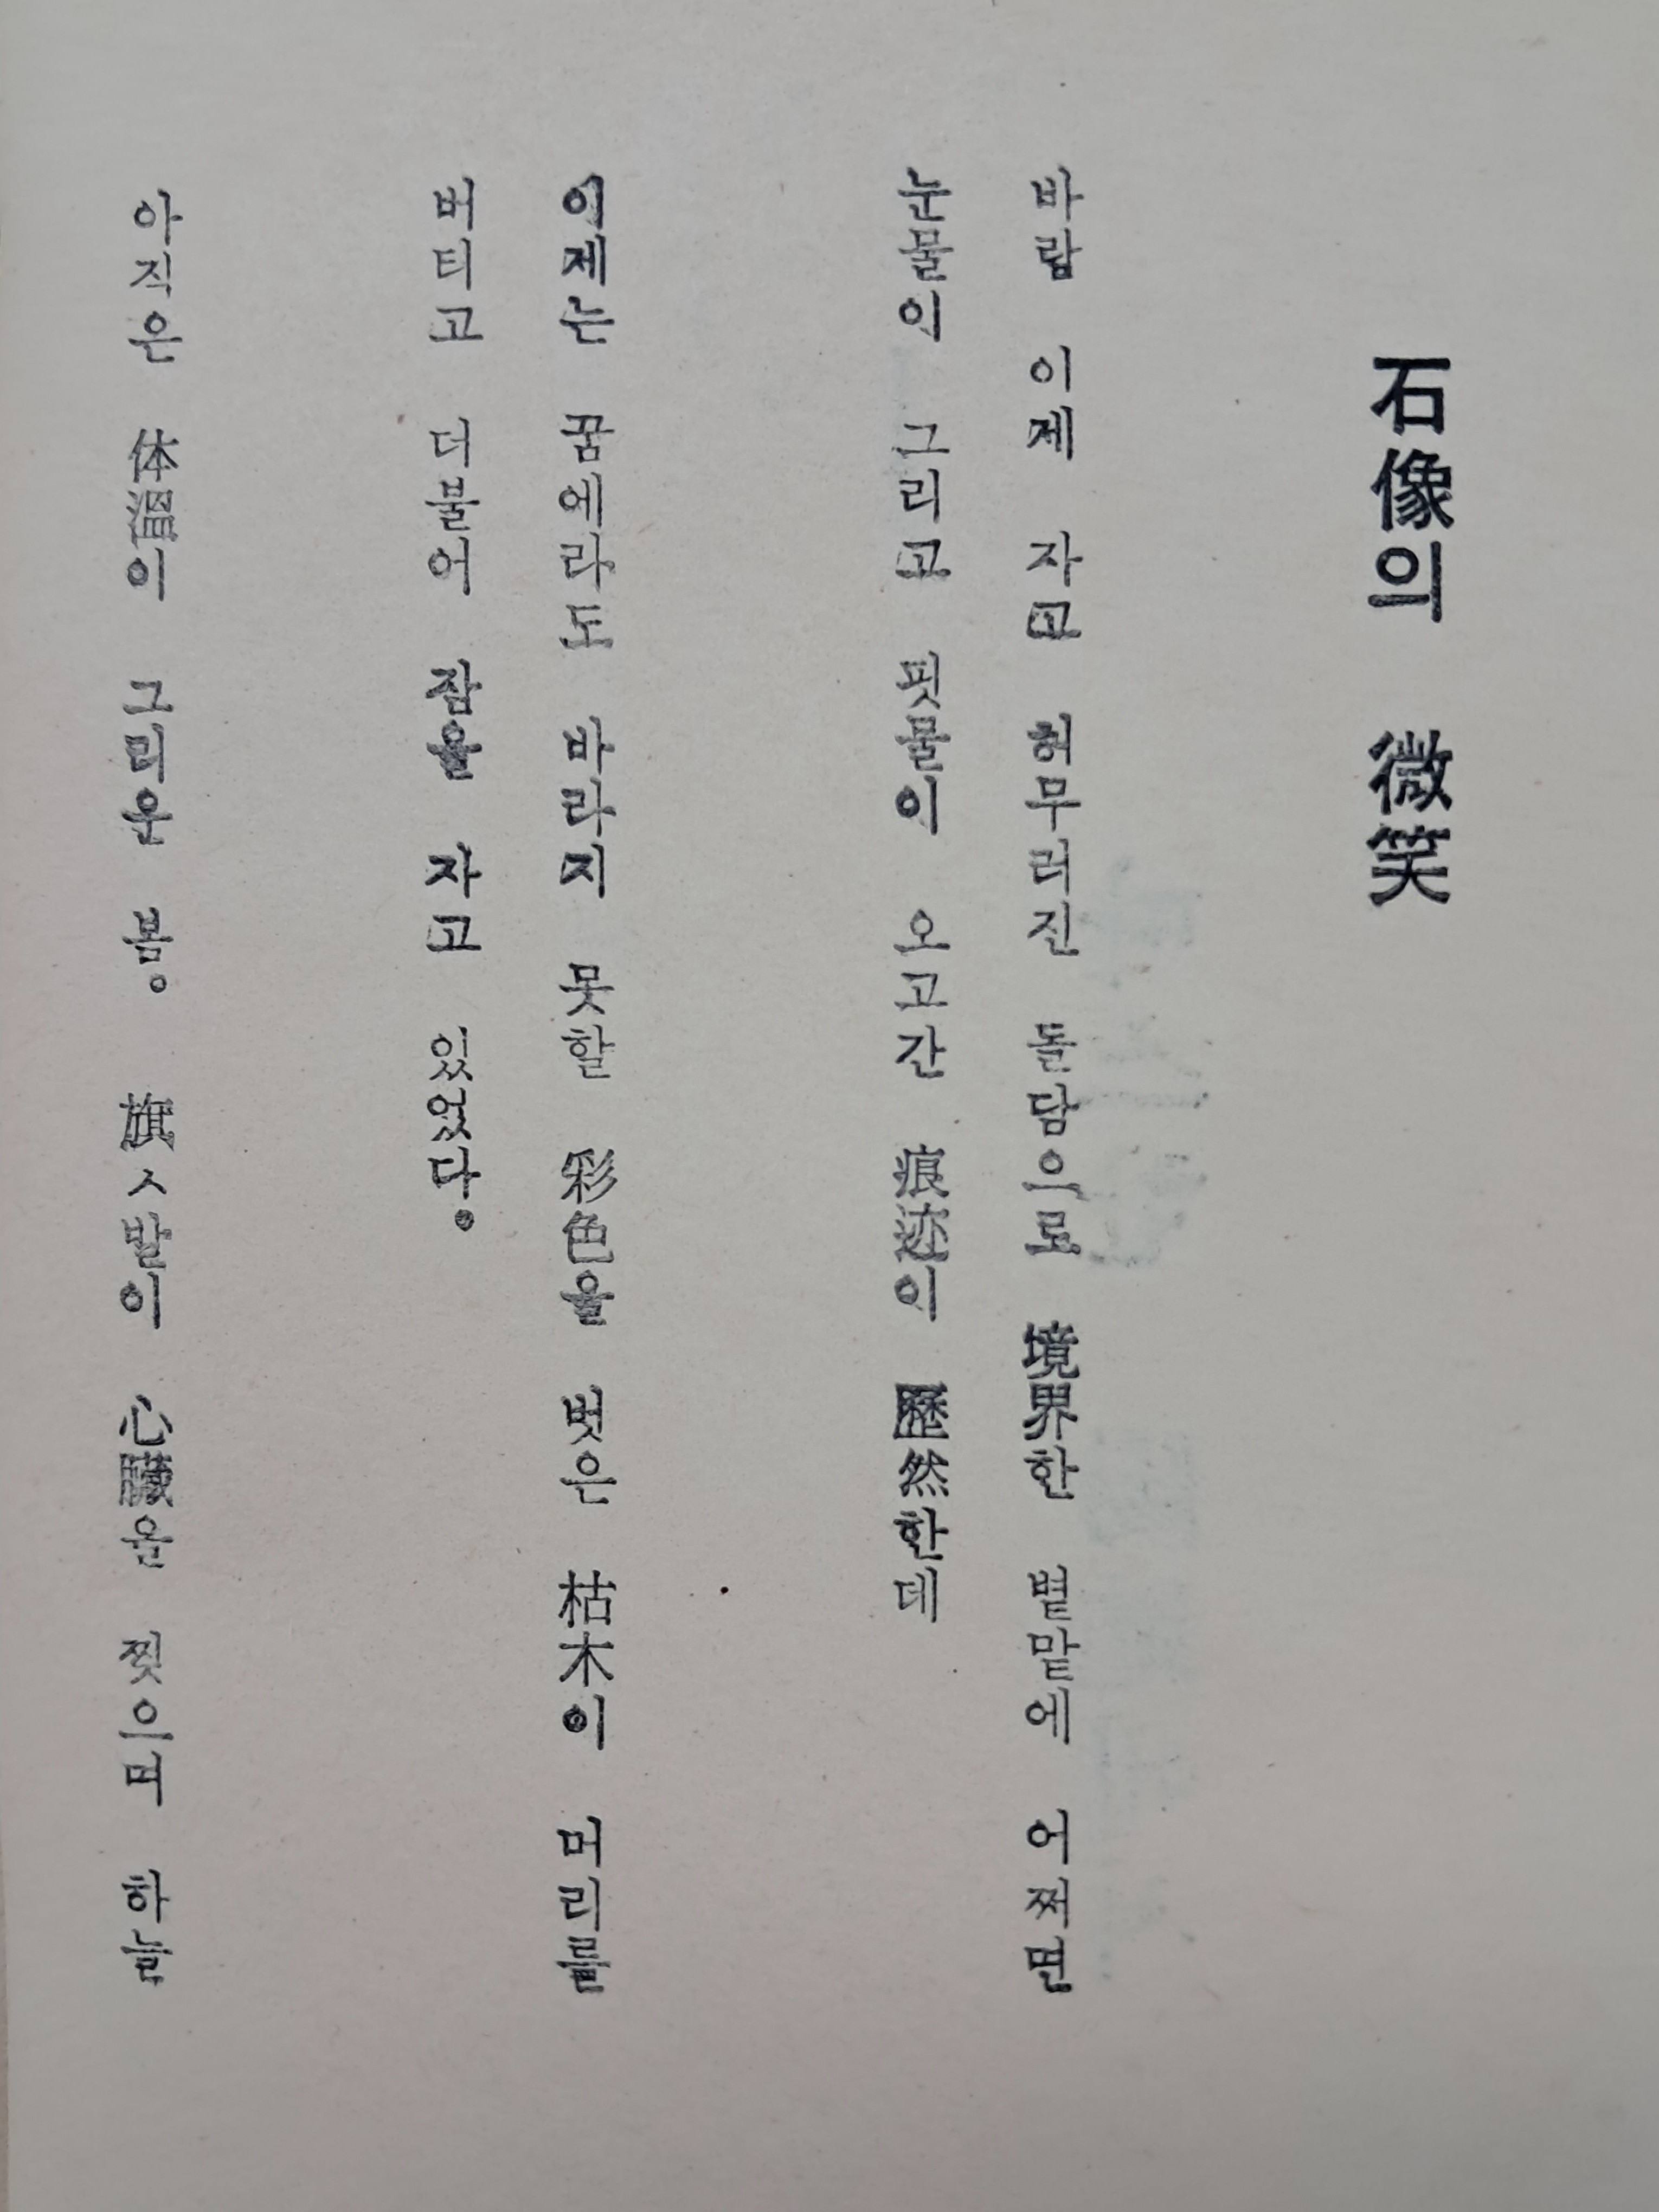 石像의 微笑
바람 이제 자고 허무러진 돌담으로 境界한 볕맡에 어쩌면
눈물이 그리고 핏물이 오고간 痕迹이 歷然한데
이제는 꿈에라도 바라지 못할 彩色을 벗은 枯木이 머리를
버티고 더불어 잠을 자고 있었다。
아직은 体溫이 그리운 봄。 旗ㅅ발이 心臟을 찢으며 하늘